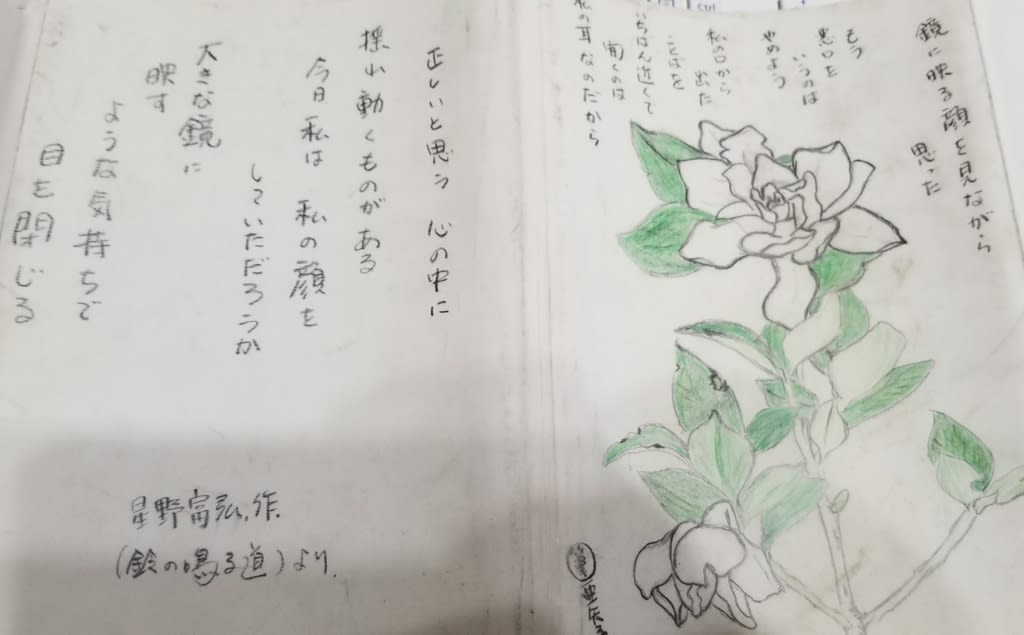 鏡に映る顔を見ながら
思った
もう
悪口を
いうのは
やめよう
私の口から
出た
ことばを
いちばん近くで
聞くのは
私の耳なのだから
正しいと思う 心の中に
揺れ動くものがある
今日 私は 私の顔を
していただろうか
大きな鏡に
映す
ような気持ちで
目を閉じる
星野富弘,作.
(鈴の鳴る道)より.